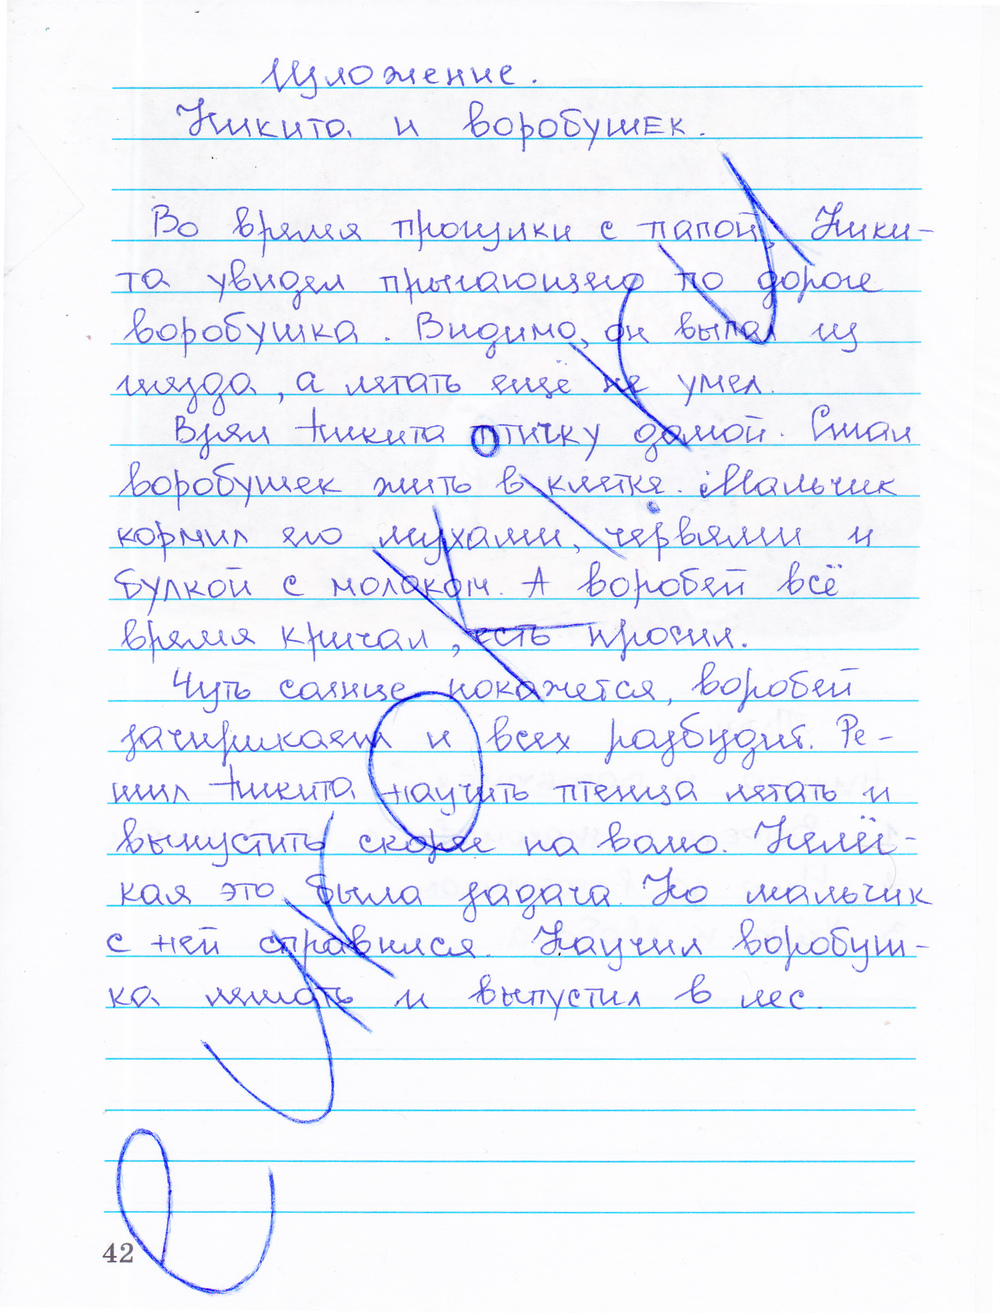 Изложение.
Никита и воробушек.
Во время прогулки с папой, Ники-
та увидел прыгающего по дороге
воробушка. Видимо, он выпал из
гнезда, а летать ещё не умел.
Взял Никита птичку домой. Стал
воробушек жить в клетке. Мальчик
кормил его мухами, червями и
булкой с молоком. А воробей всё
время кричал, есть просил.
Чуть солнце покажется, воробей
зачирикает и всех разбудит. Ре-
шил Никита научить птенца летать и
выпустить скорее на волю. Нелёг-
кая это была задача. Но мальчик
с ней справился. Научил воробуш-
ка летать и выпустил в лес.
42